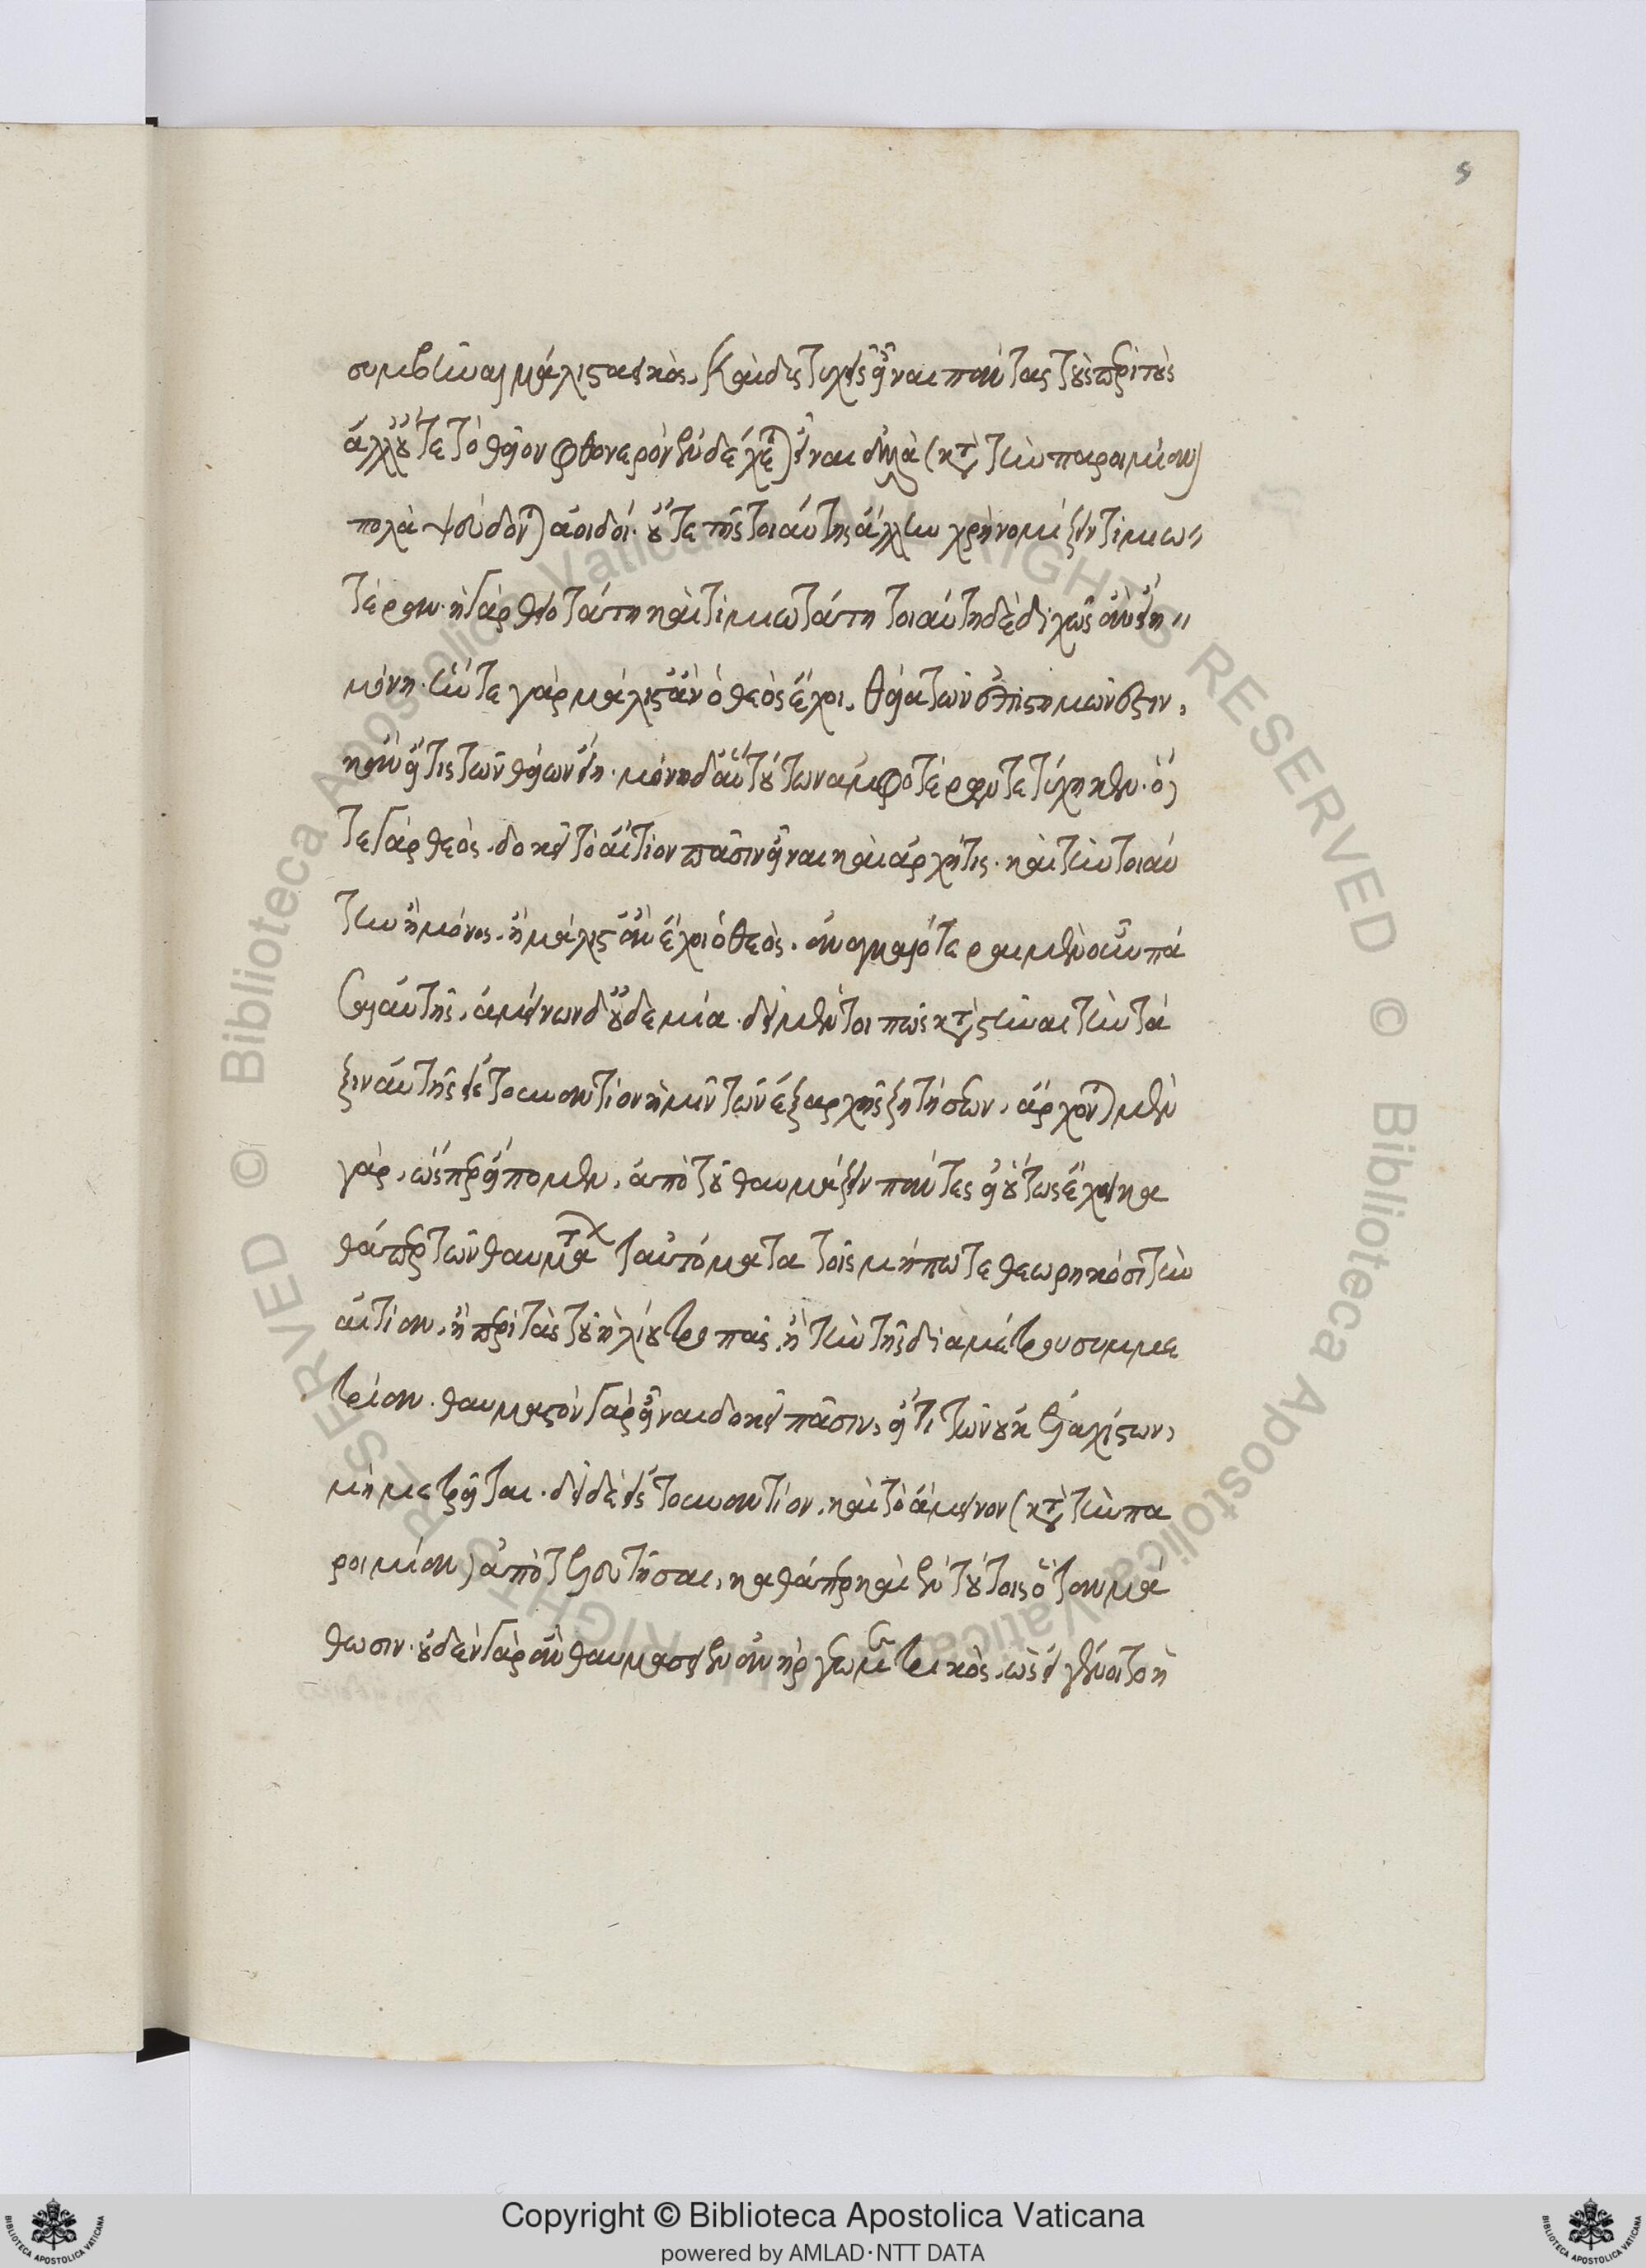 συμβῆναι μάλιστα εἰκὸς, καὶ δυστυχεῖς εἶναι πάντας τοὺς περιττοὺς
ἀλλ' οὔτε τὸ θεῖον φθονερὸν ἐνδέχεται εἶναι ἀλλὰ (κατὰ τὴν παροιμίαν)
πολὰ ψεύδονται ἀοιδοί. οὔτε τῆς τοιαύτης ἄλλην χρὴ νομίζειν τιμιω
τέραν. ἡ γὰρ θειοτάτη καὶ τιμιωτάτη τοιαύτη δὲ διχῶς ἂν εἴη
μόνη. ἥν τε γὰρ μάλιστ' ἂν ὁ θεὸς ἔχοι, θεία τῶν ἐπιστημῶν ἐστιν,
κἂν εἴ τις τῶν θείων εἴη. μόνη δ' αὖ τούτων ἀμφοτέρων τετύχηκεν. ὅ
τε γὰρ θεὸς. δοκεῖ τὸ αἴτιον πᾶσιν εἶναι καὶ ἀρχή τις. καὶ τὴν τοιαύ
την ἢ μόνος. ἢ μάλιστ' ἂν ἔχοι ὁ θεὸς. ἀναγκαιότεραι μὲν οὖν πᾶ
σαι αὐτῆς, ἀμείνων δ' οὐδεμία. δεῖ μέντοι πως καταστῆναι τὴν τά
ξιν αὐτῆς εἰς τοὐναντίον ἡμῖν τῶν ἐξαρχῆς ζητήσεων, ἄρχονται μὲν
γὰρ, ὥσπερ εἴπομεν, ἀπὸ τοῦ θαυμάζειν πάντες εἰ οὕτως ἔχει κα
θάπερ τῶν θαυμάτων ταὐτόματα τοῖς μήπω τεθεωρηκόσι τὴν
αἰτίαν, ἢ περὶ τὰς τοῦ ἡλίου τροπὰς, ἢ τὴν τῆς διαμέτρου συμμε
τρίαν. θαυμαστὸν γὰρ εἶναι δοκεῖ πᾶσιν, εἴ τι τῶν οὐκ ἐλαχίστων,
μὴ μετρεῖται. δεῖ δὲ εἰς τοὐναντίον, καὶ τὸ ἄμεινον (κατὰ τὴν πα
ροιμίαν) ἀποτελευτῆσαι, καθάπερ καὶ ἐν τούτοις ὅταν μά
θωσιν. οὐδὲν γὰρ ἂν θαυμάσειεν ἀνὴρ γεωμετρικὸς, ὡς εἰ γένοιτο ἡ
Copyright © Biblioteca Apostolica Vaticana
powered by AMLAD·NTT DATA